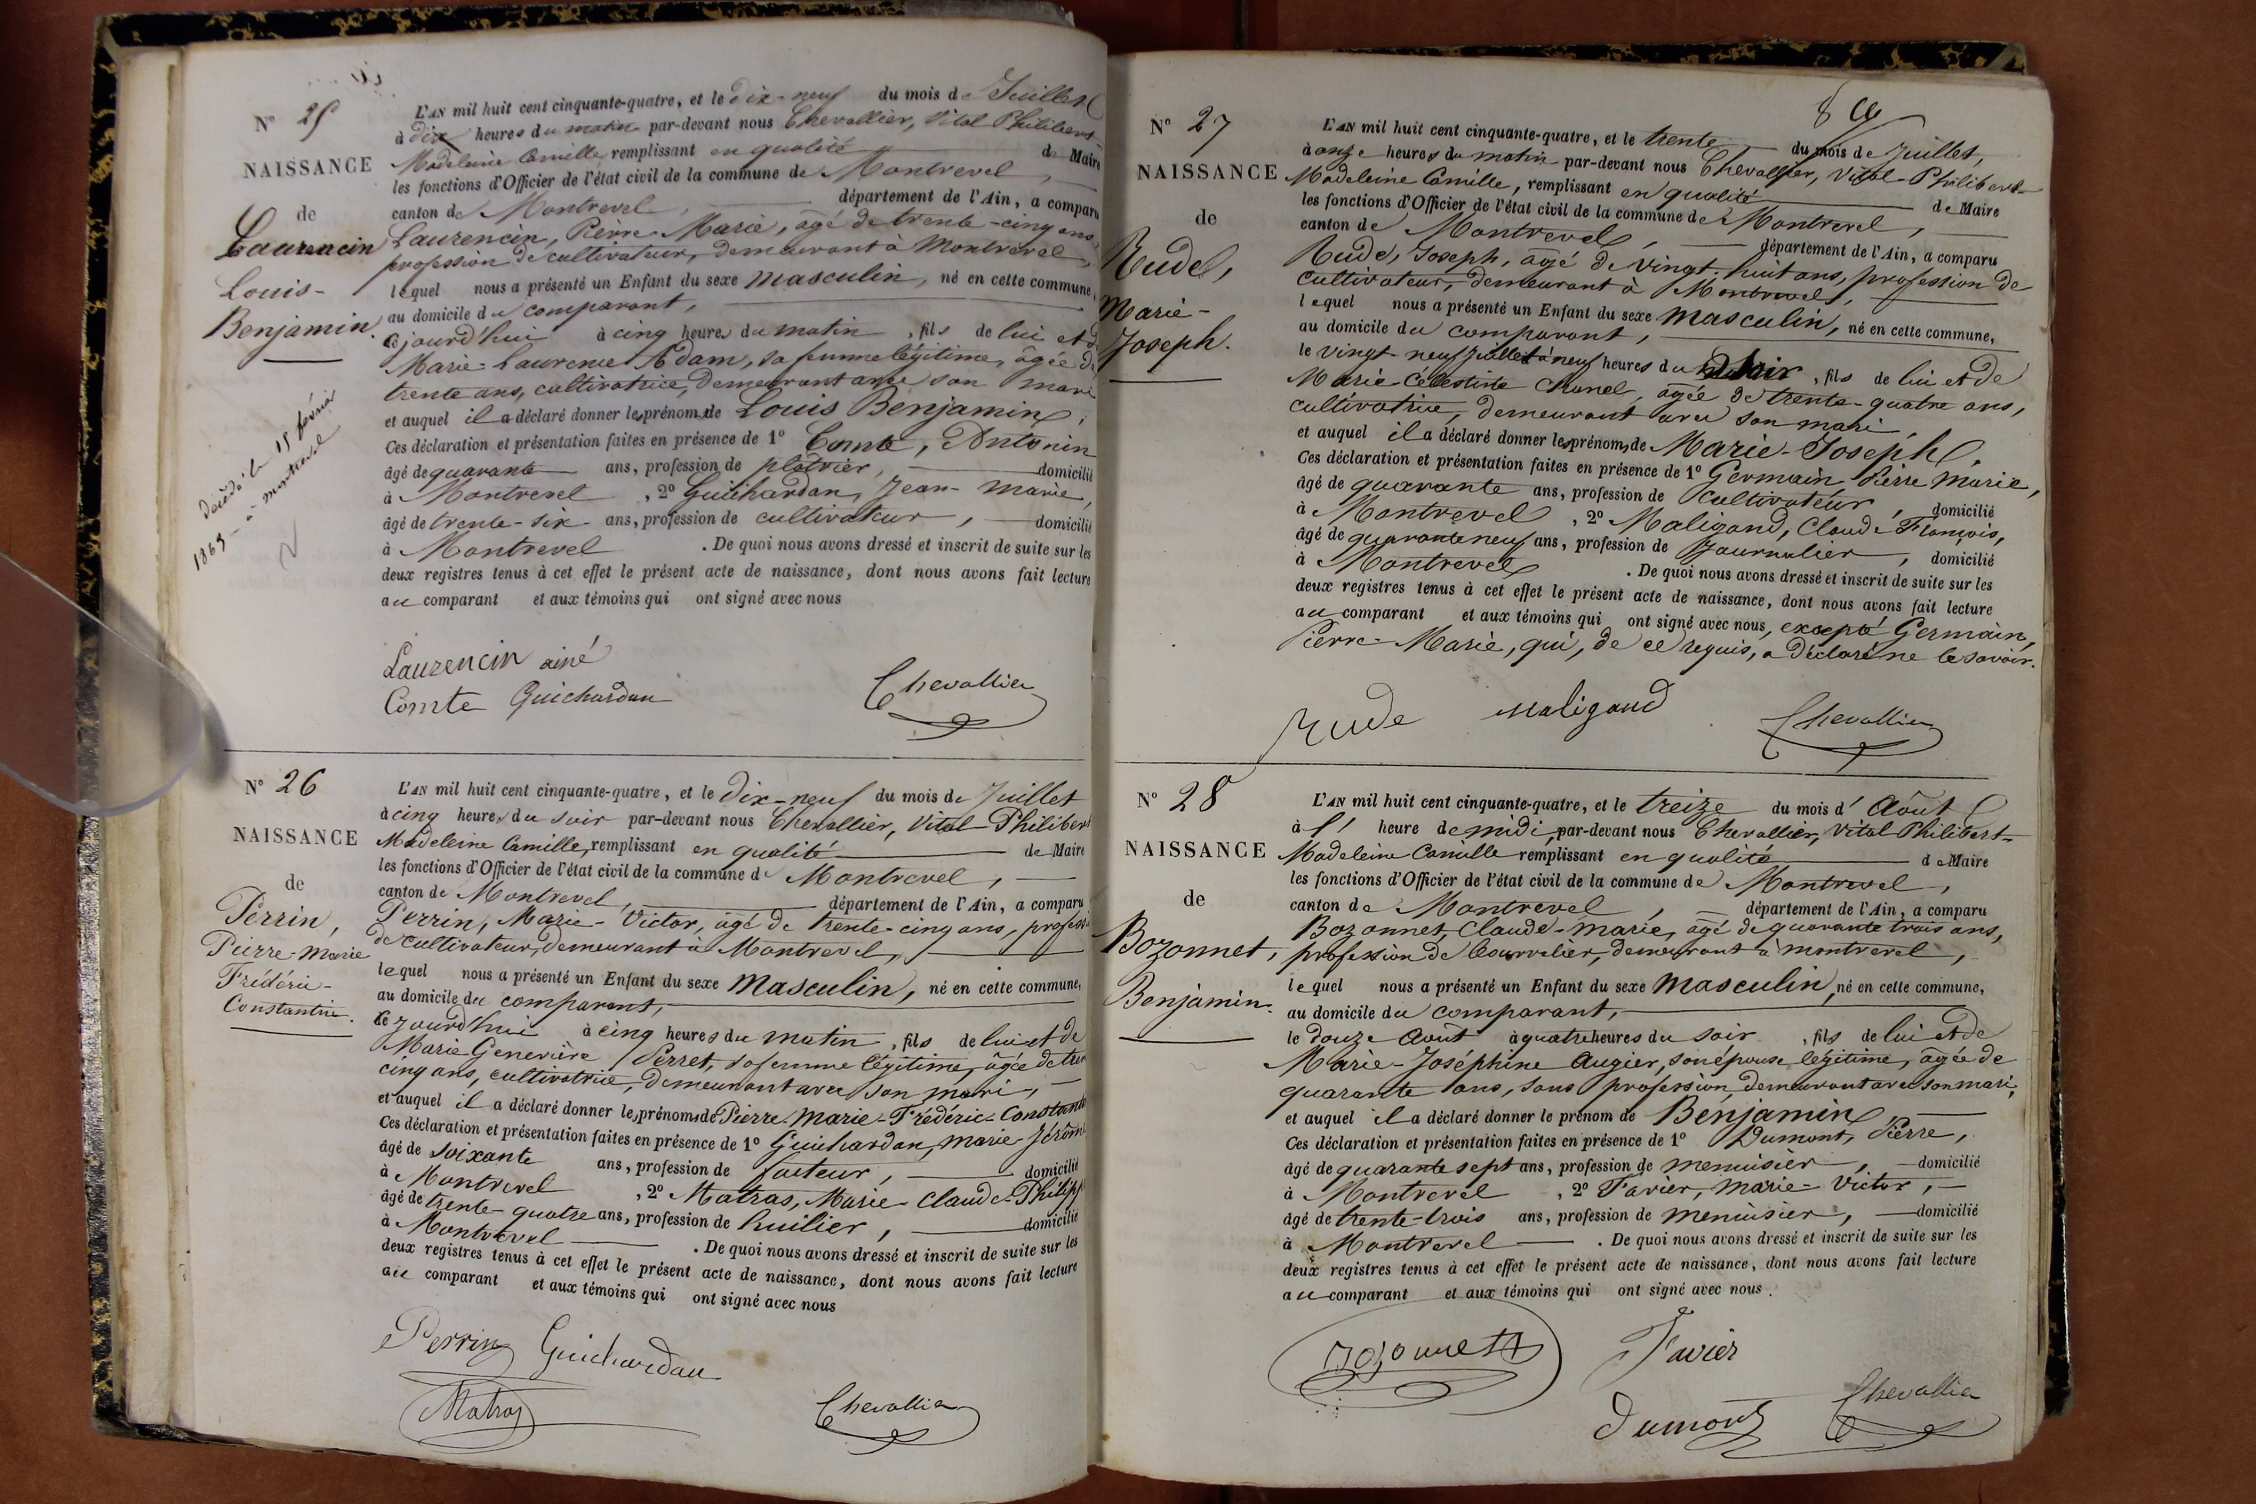 N° 25
NAISSANCE
de
Laurencin
Louis-
Benjamin.
Décédé le 15 février
1869 - à Montrevel
L'AN mil huit cent cinquante-quatre, et le dix-neuf du mois de Juillet
à dix heures du matin par-devant nous Chevallier, Vital Philibert
Madeleine Camille, remplissant en qualité de Maire
les fonctions d'Officier de l'état civil de la commune de Montrevel,
canton de Montrevel, département de l'Ain, a comparu
Laurencin, Pierre-Marie, agé de trente-cinq ans,
profession de cultivateur, demeurant à Montrevel,
lequel nous a présenté un Enfant du sexe masculin, né en cette commune,
au domicile du comparant,
cejourd'hui à cinq heures du matin, fils de lui et de
Marie-Laurence Adam, sa femme légitime, agée de
trente ans, cultivatrice, demeurant avec son mari
et auquel il a déclaré donner les prénoms de Louis Benjamin,
Ces déclaration et présentation faites en présence de 1° Comte, Antonin
âgé de quarante ans, profession de plâtrier, domicilié
à Montrevel, 2° Guichardan, Jean-Marie,
âgé de trente-six ans, profession de cultivateur, domicilié
à Montrevel. De quoi nous avons dressé et inscrit de suite sur les
deux registres tenus à cet effet le présent acte de naissance, dont nous avons fait lecture
au comparant et aux témoins qui ont signé avec nous
Laurencin ainé
Comte Guichardan Chevallier
N° 26
NAISSANCE
de
Perrin,
Pierre-Marie
Frédéric-
Constantin.
L'AN mil huit cent cinquante-quatre, et le dix-neuf du mois de Juillet
à cinq heures du soir par-devant nous Chevallier, Vital-Philibert
Madeleine Camille, remplissant en qualité de Maire
les fonctions d'Officier de l'état civil de la commune de Montrevel,
canton de Montrevel, département de l'Ain, a comparu
Perrin, Marie-Victor, âgé de trente-cinq ans, profession
de cultivateur, demeurant à Montrevel,
lequel nous a présenté un Enfant du sexe masculin, né en cette commune,
au domicile du comparant,
cejourd'hui à cinq heures du matin, fils de lui et de
Marie-Genevière Perret, sa femme légitime, âgée de trente
cinq ans, cultivatrice, demeurant avec son mari,
et auquel il a déclaré donner les prénoms de Pierre-Marie-Frédéric-Constantin
Ces déclaration et présentation faites en présence de 1° Guichardan, Marie-Jérôme
âgé de soixante ans, profession de facteur, domicilié
à Montrevel, 2° Matras, Marie-Claude-Philippe
âgé de trente-quatre ans, profession de huilier, domicilié
à Montrevel. De quoi nous avons dressé et inscrit de suite sur les
deux registres tenus à cet effet le présent acte de naissance, dont nous avons fait lecture
au comparant et aux témoins qui ont signé avec nous
Perrin Guichardan
Matras Chevallier
N° 27
NAISSANCE
de
Rude,
Marie-
Joseph.
L'AN mil huit cent cinquante-quatre, et le trente du mois de Juillet,
à onze heures du matin par-devant nous Chevallier, Vital-Philibert-
Madeleine Camille, remplissant en qualité de Maire
les fonctions d'Officier de l'état civil de la commune de Montrevel,
canton de Montrevel, département de l'Ain, a comparu
Rude, Joseph, agé de vingt-huit ans, profession de
cultivateur, demeurant à Montrevel,
lequel nous a présenté un Enfant du sexe masculin, né en cette commune,
au domicile du comparant,
le vingt-neuf juillet à neuf heures du soir, fils de lui et de
Marie-Célestine Chanel, agée de trente-quatre ans,
cultivatrice, demeurant avec son mari,
et auquel il a déclaré donner les prénoms de Marie-Joseph.
Ces déclaration et présentation faites en présence de 1° Germain Pierre Marie,
âgé de quarante ans, profession de cultivateur, domicilié
à Montrevel, 2° Maligand, Claude François,
âgé de quarante neuf ans, profession de Journalier, domicilié
à Montrevel. De quoi nous avons dressé et inscrit de suite sur les
deux registres tenus à cet effet le présent acte de naissance, dont nous avons fait lecture
au comparant et aux témoins qui ont signé avec nous, excepté Germain,
Pierre-Marie, qui, de ce requis, a déclaré ne le savoir.
Rude Maligand Chevallier
N° 28
NAISSANCE
de
Bozonnet,
Benjamin.
L'AN mil huit cent cinquante-quatre, et le treize du mois d'Août
à l'heure de midi, par-devant nous Chevallier, Vital Philibert-
Madeleine Camille remplissant en qualité de Maire
les fonctions d'Officier de l'état civil de la commune de Montrevel,
canton de Montrevel, département de l'Ain, a comparu
Bozonnet, Claude-Marie, agé de quarante trois ans,
profession de Bourrelier, demeurant à Montrevel,
lequel nous a présenté un Enfant du sexe masculin, né en cette commune,
au domicile du comparant,
le douze août à quatre heures du soir, fils de lui et de
Marie-Joséphine Augier, son épouse légitime, agée de
quarante ans, sans profession, demeurant avec son mari,
et auquel il a déclaré donner le prénom de Benjamin,
Ces déclaration et présentation faites en présence de 1° Dumont, Pierre,
âgé de quarante sept ans, profession de menuisier, domicilié
à Montrevel, 2° Favier, Marie-Victor,
âgé de trente-trois ans, profession de menuisier, domicilié
à Montrevel. De quoi nous avons dressé et inscrit de suite sur les
deux registres tenus à cet effet le présent acte de naissance, dont nous avons fait lecture
au comparant et aux témoins qui ont signé avec nous.
Bozonnet Favier
Dumont Chevallier